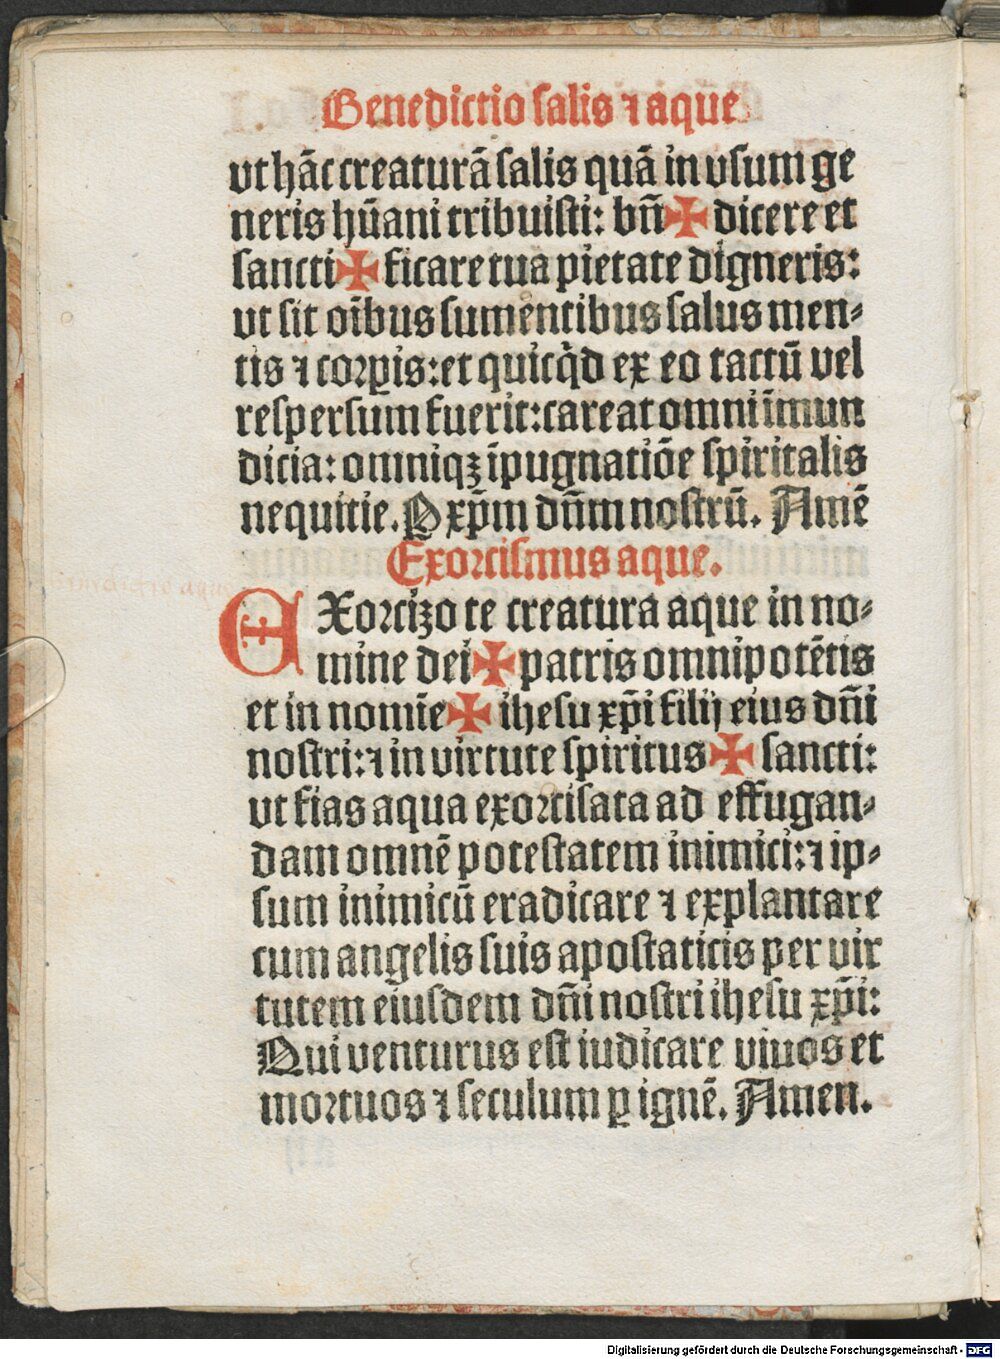 Benedictio salis ⁊ aque
vt hāc creaturā salis quā in vsum ge
neris hūani tribuisti: bn̄ ✠ dicere et
sancti ✠ ficare tua pietate digneris:
vt sit oībus sumentibus salus men⸗
tis ⁊ corꝑis: et quicq̄d ex eo tactū vel
respersum fuerit: careat omni īmun
dicia: omniqꝫ īpugnatiōe spiritalis
nequitie. P xp̄m dn̄m nostrū. Amē
Exorcismus aque.
EXorcizo te creatura aque in no⸗
mine dei ✠ patris omnipotētis
et in nomīe ✠ ihesu xp̄i filij eius dn̄i
nostri: ⁊ in virtute spiritus ✠ sancti:
vt fias aqua exorcisata ad effugan⸗
dam omnē potestatem inimici: ⁊ ip⸗
sum inimicū eradicare ⁊ explantare
cum angelis suis apostaticis per vir
tutem eiusdem dn̄i nostri ihesu xp̄i:
Qui venturus est iudicare viuos et
mortuos ⁊ seculum ꝑ ignē. Amen.
Digitalisierung gefördert durch die Deutsche Forschungsgemeinschaft - DFG